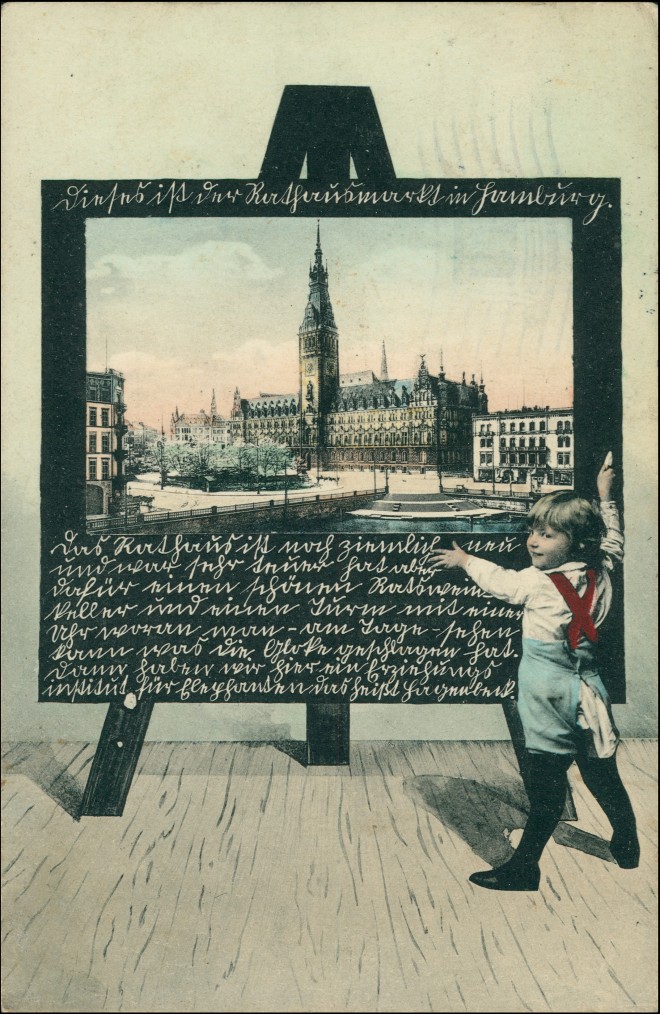 Dieses ist der Rathausmarkt in Hamburg.
Das Rathaus ist noch ziemlich neu
und war sehr teuer hat aber
dafür einen schönen Ratswein
keller und einen Turm mit einer
Uhr woran man - am Tage - sehen
kann was die Glocke geschlagen hat.
Dann haben wir hier ein Erziehungs
institut für Elephanten das heißt Hagenbeck.